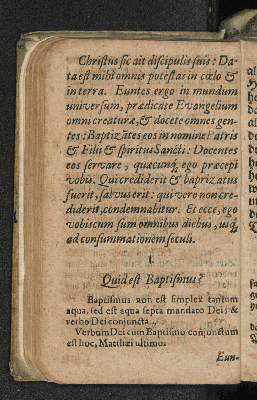 Christus sic ait discipulis suis: Da-
ta est mihi omnis potestas in cœlo &
in terra. Euntes ergo in mundum
universum, prædicate Evangelium
omni creaturæ, & docete omnes gen-
tes: Baptizātes eos in nomine Patris
& Filii & Spiritus Sancti: Docentes
eos servare, quæcunq; ego præcepi
vobis. Qui crediderit & baptizatus
fuerit, salvus erit: qui vero non cre-
diderit, condemnabitur. Et ecce, ego
vobiscum sum omnibus diebus, usq;
ad consummationem seculi.
I.
Quid est Baptismus?
Baptismus non est simplex tantum
aqua, sed est aqua septa mandato Dei, &
verbo Dei conjuncta.
Verbum Dei cum Baptismo conjunctum
est hoc, Matthæi ultimo.
Eun-